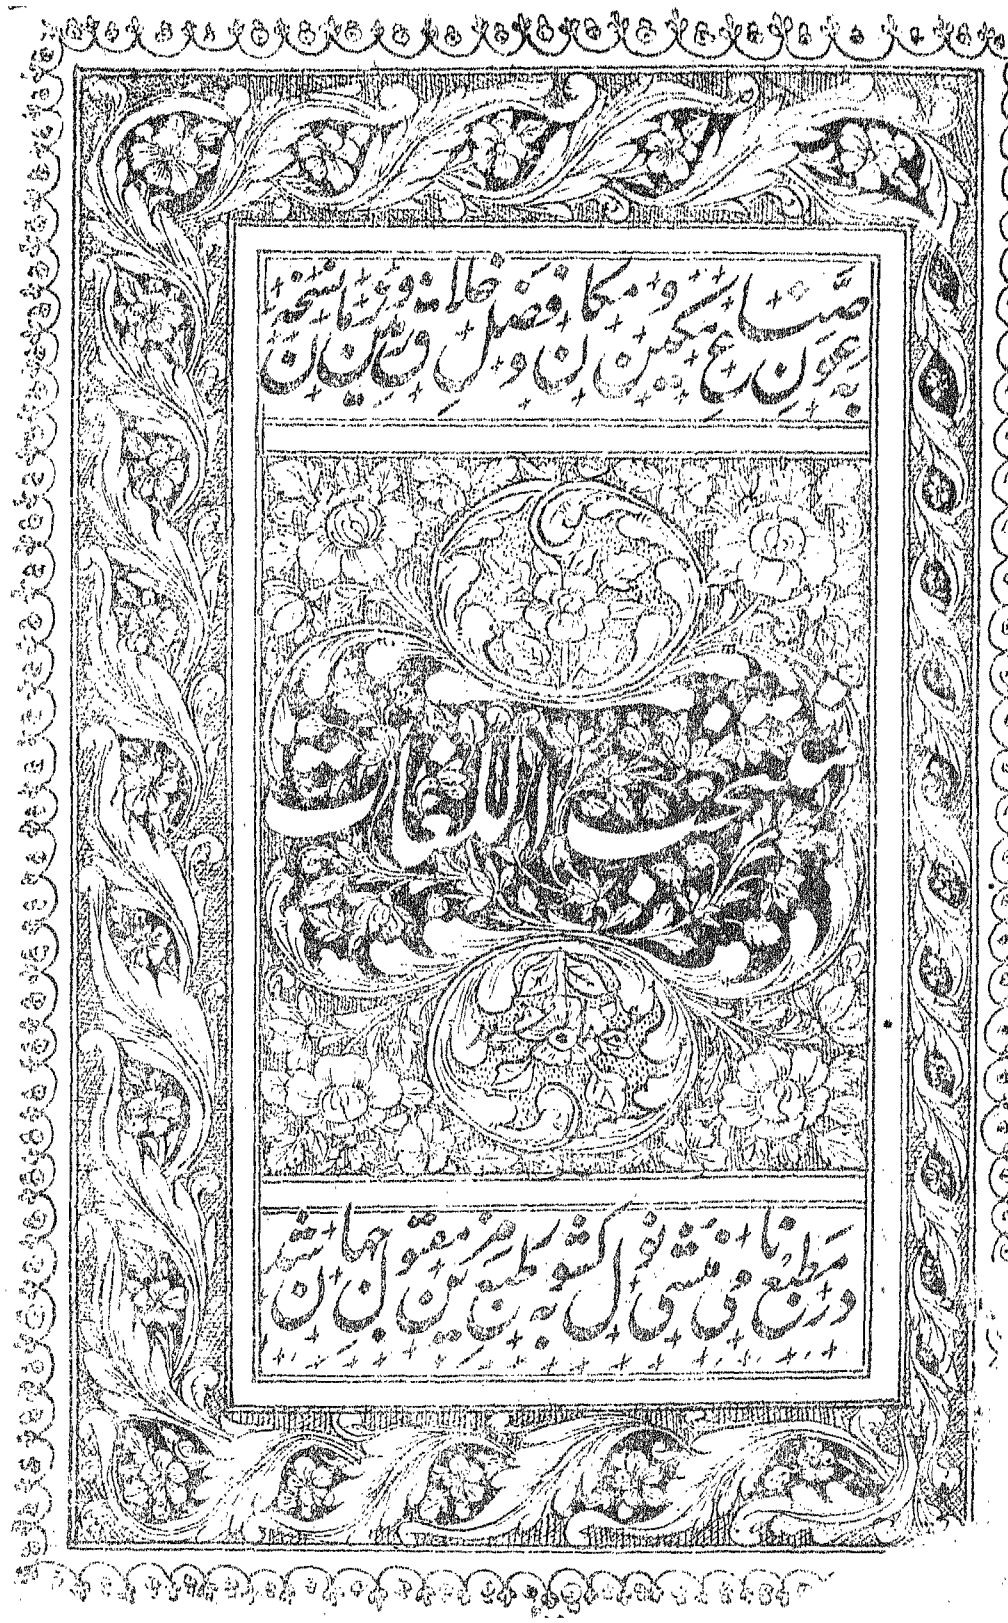 بعون صناع مکین و مکان و فضل خلاق زمین و زمان نسخه
منتخب اللغات
در مطبع نامی منشی نول کشور به طبع مزین مقبول جهان شد